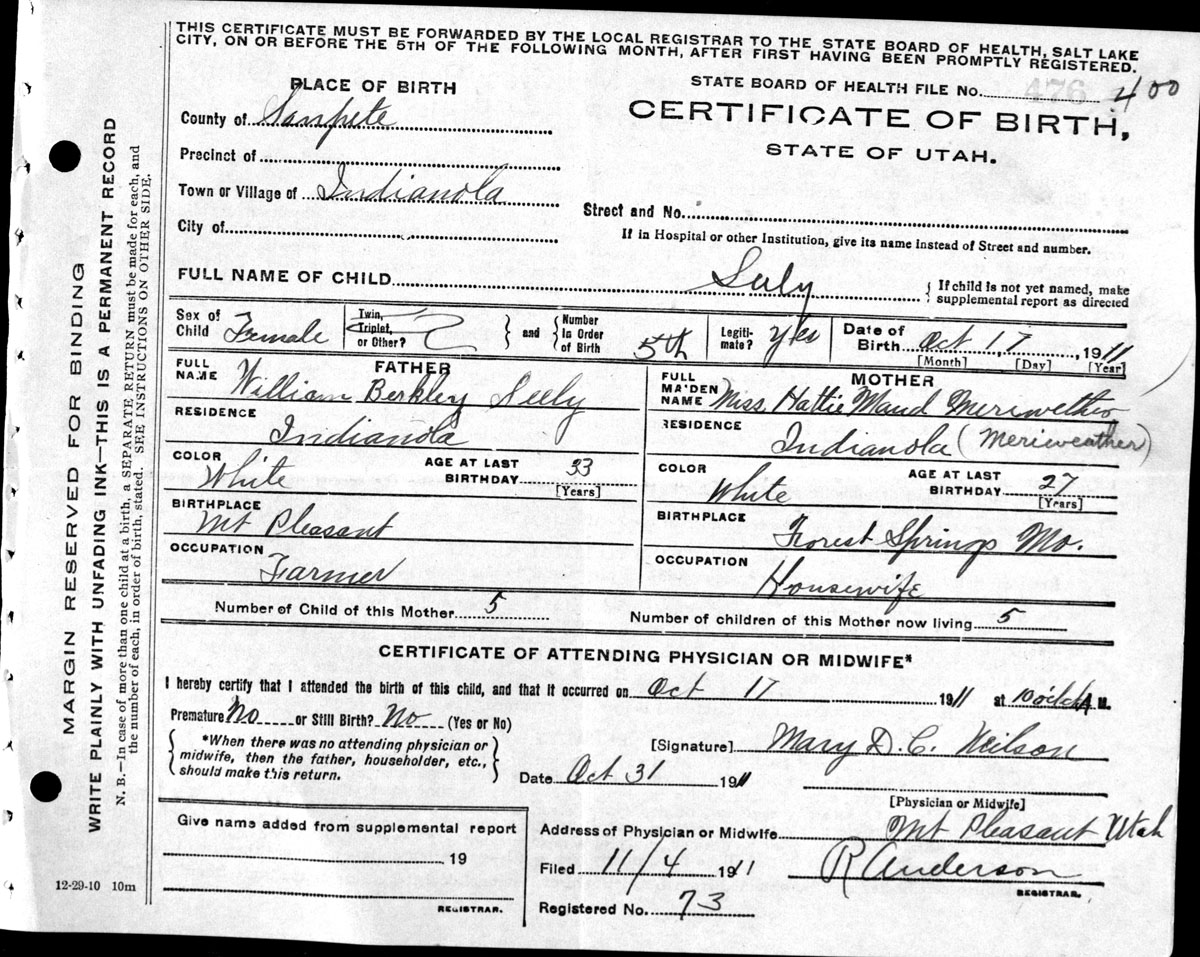 THIS CERTIFICATE MUST BE FORWARDED BY THE LOCAL REGISTRAR TO THE STATE BOARD OF HEALTH, SALT LAKE
CITY, ON OR BEFORE THE 5TH OF THE FOLLOWING MONTH, AFTER FIRST HAVING BEEN PROMPTLY REGISTERED.
PLACE OF BIRTH
STATE BOARD OF HEALTH FILE No. 476 400
County of Sanpete
CERTIFICATE OF BIRTH,
STATE OF UTAH.
Precinct of
Town or Village of Indianola
Street and No.
City of
If in Hospital or other Institution, give its name instead of Street and number.
FULL NAME OF CHILD Seely
{ If child is not yet named, make
supplemental report as directed
Sex of Child Female
Twin, Triplet, or Other?
} and { Number In Order of Birth 5th
Legiti-mate? Yes
Date of Birth Oct 17, 1911
[Month] [Day] [Year]
FATHER
FULL NAME William Berkley Seely
MOTHER
FULL MAIDEN NAME Miss Hattie Maud Meriwether
RESIDENCE Indianola
RESIDENCE Indianola (Meriweather)
COLOR White
AGE AT LAST BIRTHDAY 33
[Years]
COLOR White
AGE AT LAST BIRTHDAY 27
[Years]
BIRTHPLACE Mt Pleasant
BIRTHPLACE Forest Springs Mo.
OCCUPATION Farmer
OCCUPATION Housewife
Number of Child of this Mother 5
Number of children of this Mother now living 5
CERTIFICATE OF ATTENDING PHYSICIAN OR MIDWIFE*
I hereby certify that I attended the birth of this child, and that it occurred on Oct 17 1911 at 10 o'clock A M.
Premature No or Still Birth? No (Yes or No)
{ *When there was no attending physician or
midwife, then the father, householder, etc.,
should make this return. }
[Signature] Mary D. C. Neilson
Date Oct 31 1911
[Physician or Midwife]
Give name added from supplemental report
19
REGISTRAR.
Address of Physician or Midwife Mt Pleasant Utah
Filed 11/4 1911 R Anderson
REGISTRAR.
Registered No. 73
12-29-10 10m
MARGIN RESERVED FOR BINDING
WRITE PLAINLY WITH UNFADING INK—THIS IS A PERMANENT RECORD
N. B.—In case of more than one child at a birth, a SEPARATE RETURN must be made for each, and
the number of each, in order of birth, stated. SEE INSTRUCTIONS ON OTHER SIDE.